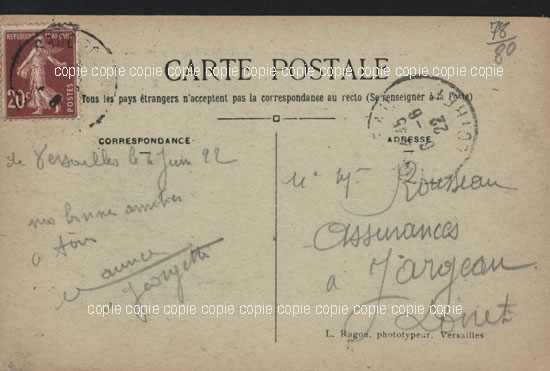 78
80
REPUBLIQUE FRANÇAISE
20c
POSTES
CARTE POSTALE
copie copie copie copie copie copie copie copie copie copie
Tous les pays étrangers n'acceptent pas la correspondance au recto (Se renseigner à la Poste)
CORRESPONDANCE
de Versailles le Juin 22
nos bonnes amitiés
a tous
Georgette
ADRESSE
Rousseau
Assurances
à Jargeau
Loiret
copie copie copie copie copie copie copie copie copie
L. Ragon, phototypeur, Versailles